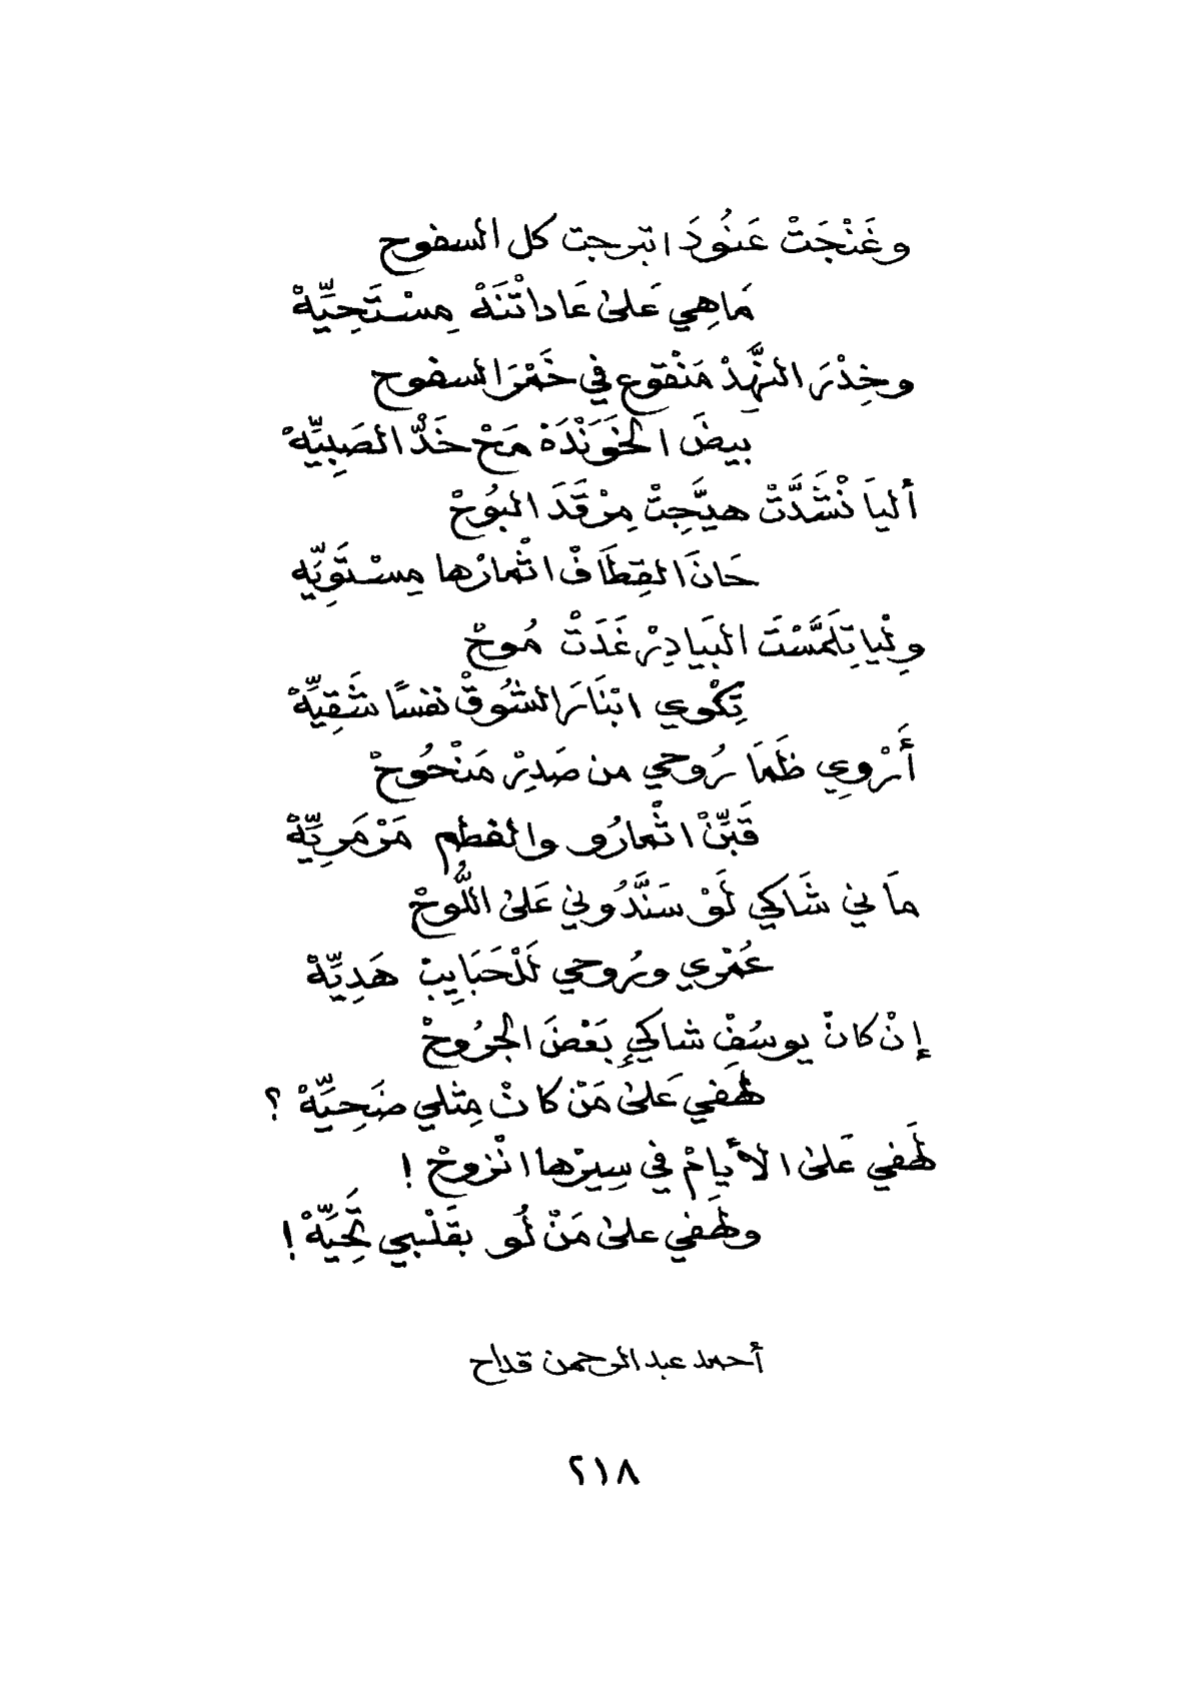 وغَنْجَتْ عَنُودَ اتبرجت كل السفوح
مَاهِي عَلىٰ عَاداتْنَهْ مِسْتَحِيِّهْ
وخِدْرَ النَّهِدْ مَنْقوع في خَمْرَ السفوح
بيضَ الخَوَنْدَهْ مَحْ خَدّْ الصَبِيِّهْ
أليَا نْشَدَّتْ هيَّجِتْ مِرْقَدَ البُوحْ
حَانَ القِطَافْ اثْمارْها مِسْتَوِيِّه
وِلْيا تِلَمَّسْتَ البَيَادِرْ غَدَتْ مُوحْ
تِكْوي ابْنَارَ الشُوقْ نفسًا شَقِيِّهْ
أَرْوِي ظَمَا رُوحي من صَدِرْ مَنْحُوحْ
قَبِّنْ اثْمارُو والفطم مَرْمَرِيِّهْ
مَاني شَاكي لَوْ سَنَّدُوني عَلىٰ اللُّوحْ
عُمْري ورُوحي لَلْحَبَايِبْ هَدِيِّهْ
إنْ كانْ يوسُفْ شاكيِ بَعْضَ الجرُوحْ
لهَفي عَلىٰ مَنْ كانْ مِثلي ضَحِيِّهْ ؟
لهَفي عَلىٰ الأيامْ في سِيرْها انْزوحْ !
ولهَفي علىٰ مَنْ لُو بقَلْبي تَحِيِّهْ !
أحمد عبد الرحمن قداح
٢١٨